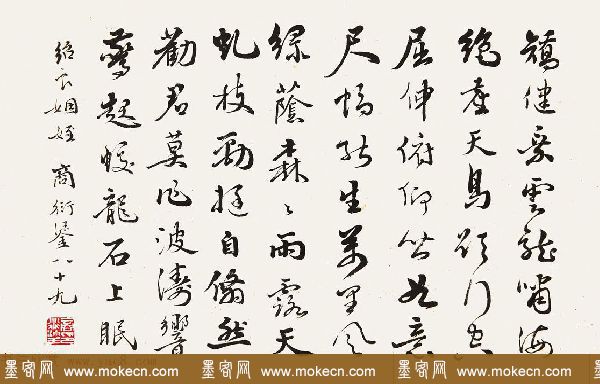 矯健乘雲龍嘯海
絕塵天馬欲行空
屈伸俯仰皆如意
尺幅能生萬里風
綠蔭森〻雨露天
虬枝勁挺自翛然
勸君莫作波濤響
驚起蛟龍石上眠
紹良姻姪 商衍鎏八十九
墨客网 www.mokecn.com 墨客网 www.mokecn.com 墨客网 www.mokecn.com